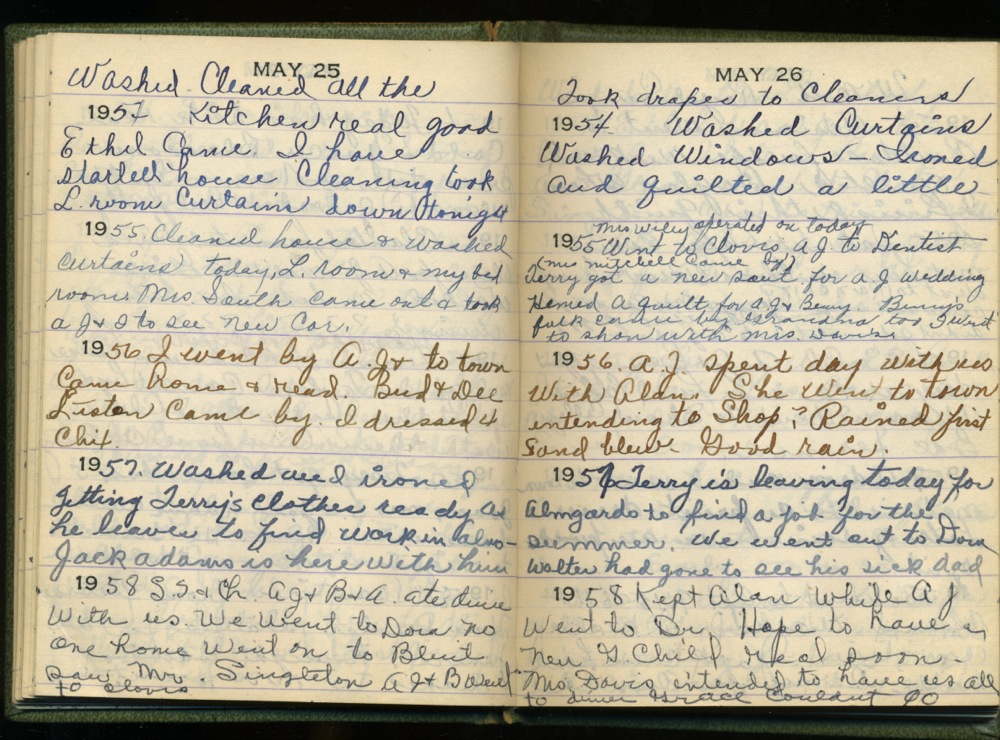 MAY 25
Washed. Cleaned all the
1954 Kitchen real good
Ethel Came. I have
started house Cleaning took
L. room Curtains down tonight
1955. Cleaned house & washed
curtains today, L. room & my bed
room. Mrs. South came out & took
a J & I to see new Car.
1956 I went by A. J & to town
Came home & read. Bud & Dee
Liston Came by. I dressed 4
Chix
1957. Washed and ironed
getting Terry's clothes ready as
he leave to find work in almo-
Jack adams is here with him
1958 S.S. & Ch. A J & B & A. ate dine
With us. We Went to Dora no
one home Went on to Bluit
saw Mr. Singleton A J & B went
to clovis
MAY 26
Took drapes to Cleaners
1954 Washed Curtains
Washed Windows - Ironed
and quilted a little
Mrs Wiley operated on today
1955 Went to Clovis A J to Dentist
(mrs mitchell came by)
Terry got a new suit for a J wedding
Hemed a quilt for a J & Benny. Benny's
folk came by Grandma too I went
to show with mrs. Davis.
1956. A. J. spent day with us
With Alan. She Wen to town
intending to Shop? Rained first
Sand blew - Good rain.
1957 Terry is leaving today for
Almgardo to find a job for the
summer. We went out to Dora
Walter had gone to see his sick dad
1958 Kept Alan While A J
Went to Dr. Hope to have a
new G. Child real soon -
Mrs. Davis intended to have us all
to dinner Grace Couldnt go